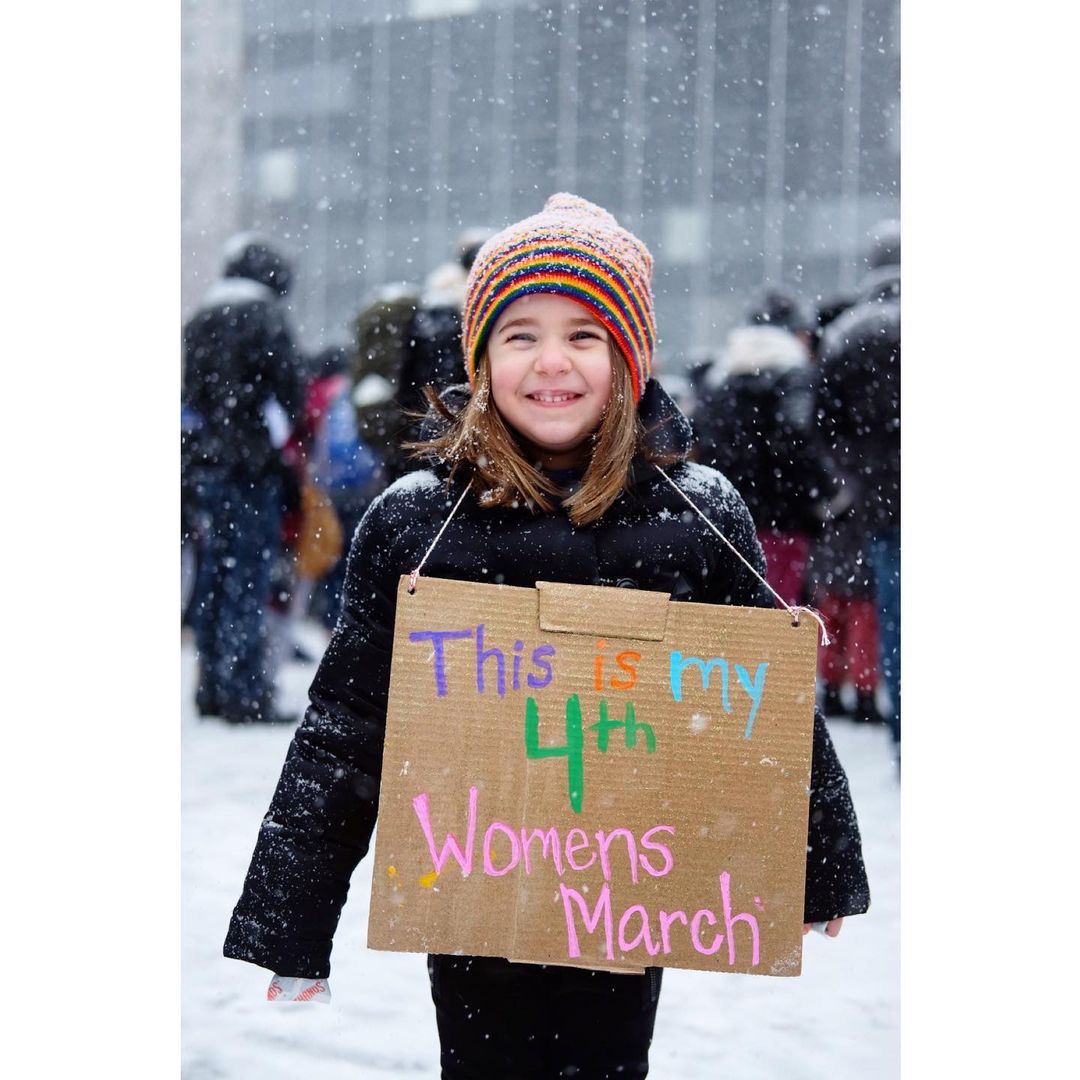 This is my
4th
Womens
March